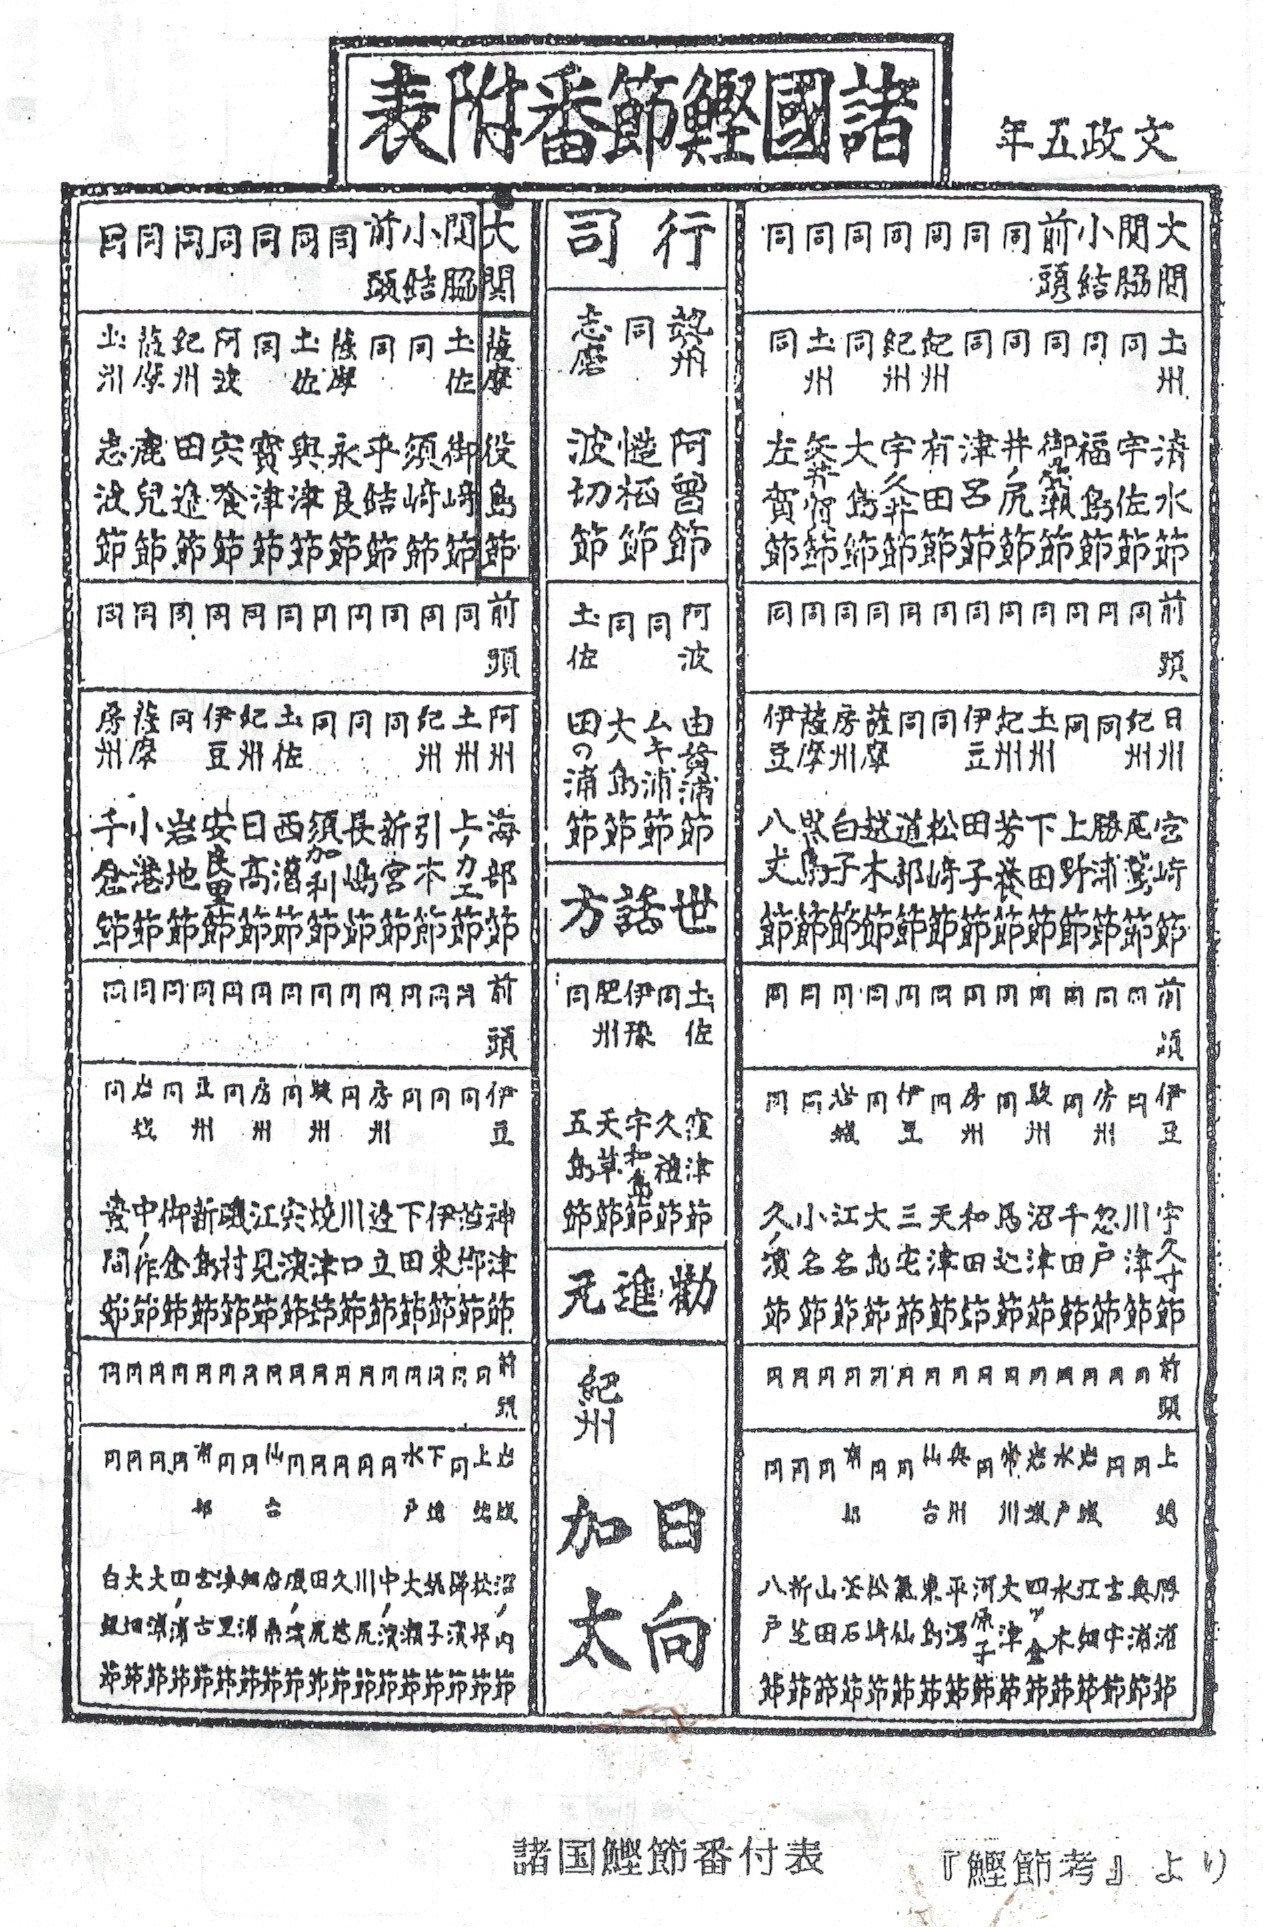 文政五年
諸國鰹節番附表
大関 土州 清水節
関脇 同 宇佐節
小結 同 福島節
前頭 同 御 瀬節
同 同 井ノ尻節
同 同 津呂節
同 紀州 有田節
同 紀州 宇久井節
同 同 大島節
同 土州 矢井賀節
同 同 左賀節
前頭 日州 宮崎節
同 紀州 尾鷲節
同 同 勝浦節
同 同 上野節
同 土州 下田節
同 紀州 芳養節
同 伊豆 田子節
同 同 松崎節
同 同 道部節
同 薩摩 越木節
同 房州 白子節
同 薩摩 黒島節
同 伊豆 八丈節
前頭 伊豆 宇久寸節
同 同 川津節
同 房州 忽戸節
同 同 千田節
同 駿州 沼津節
同 同 馬込節
同 房州 和田節
同 同 天津節
同 伊豆 三宅節
同 同 大島節
同 岩城 江名節
同 同 小名節
同 同 久ノ濱節
前頭 上総 勝浦節
同 同 奥浦節
同 同
同 岩城 江畑節
同 水戸 水木節
同 岩城 四ツ倉節
同 常州 大津節
同 同 河原子節
同 奥州 平潟節
同 仙台 東島節
同 同 氣仙節
同 同 松崎節
同 南部 釜石節
同 同 山田節
同 同
同 同 八戸節
行司
勢州 阿曽節
同 慥柄節
志摩 波切節
阿波 由岐浦節
同 ムキ浦節
同 大島節
土佐 田の浦節
世話方
土佐 窪津節
同 久礼節
伊豫 宇和島節
肥州 天草節
同 五島節
勧進元
日向
紀州 加太
大関 薩摩 役島節
関脇 土佐 御崎節
小結 同 須崎節
前頭 同 平結節
同 薩摩 永良節
同 土佐 與津節
同 同 寳津節
同 阿波 宍喰節
同 紀州 田辺節
同 薩摩 鹿兒節
同 土州 志波節
前頭 阿州 海部節
同 土州 上ノカエ節
同 紀州 引本節
同 同 新宮節
同 同 長嶋節
同 同 須加利節
同 土佐 西濱節
同 紀州 日高節
同 伊豆 安良里節
同 同 岩地節
同 薩摩 小港節
同 房州 千倉節
前頭 伊豆 神津節
同 同
同 同 伊東節
同 同 下田節
同 房州 邉立節
同 同 川口節
同 駿州 焼津節
同 同 宍濱節
同 房州 江見節
同 同 磯村節
同 豆州 新島節
同 同 御倉節
同 岩城 中ノ作節
同 同 豊間節
前頭 岩城 沼ノ内節
同 上総 松部節
同 同 濱節
同 下総 銚子節
同 水戸 大瀬節
同 同 中ノ濱節
同 同 川尻節
同 同 久慈節
同 同 田尻節
同 同 磯ノ濱節
同 仙台 唐桑節
同 同 細浦節
同 同 里節
同 南部 宮古節
同 同 四ノ浦節
同 同 大浦節
同 同 大畑節
同 同 白銀節
諸国鰹節番付表
『鰹節考』より